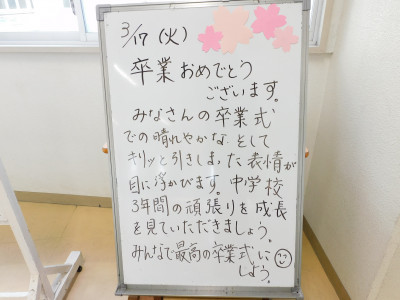 3/17(火)
卒業おめでとう
ございます。
みなさんの卒業式
での晴れやかな、そして
キリッと引きしまった表情が
目に浮かびます。中学校
3年間の頑張りを成長
を見ていただきましょう。
みんなで最高の卒業式に
しよう。